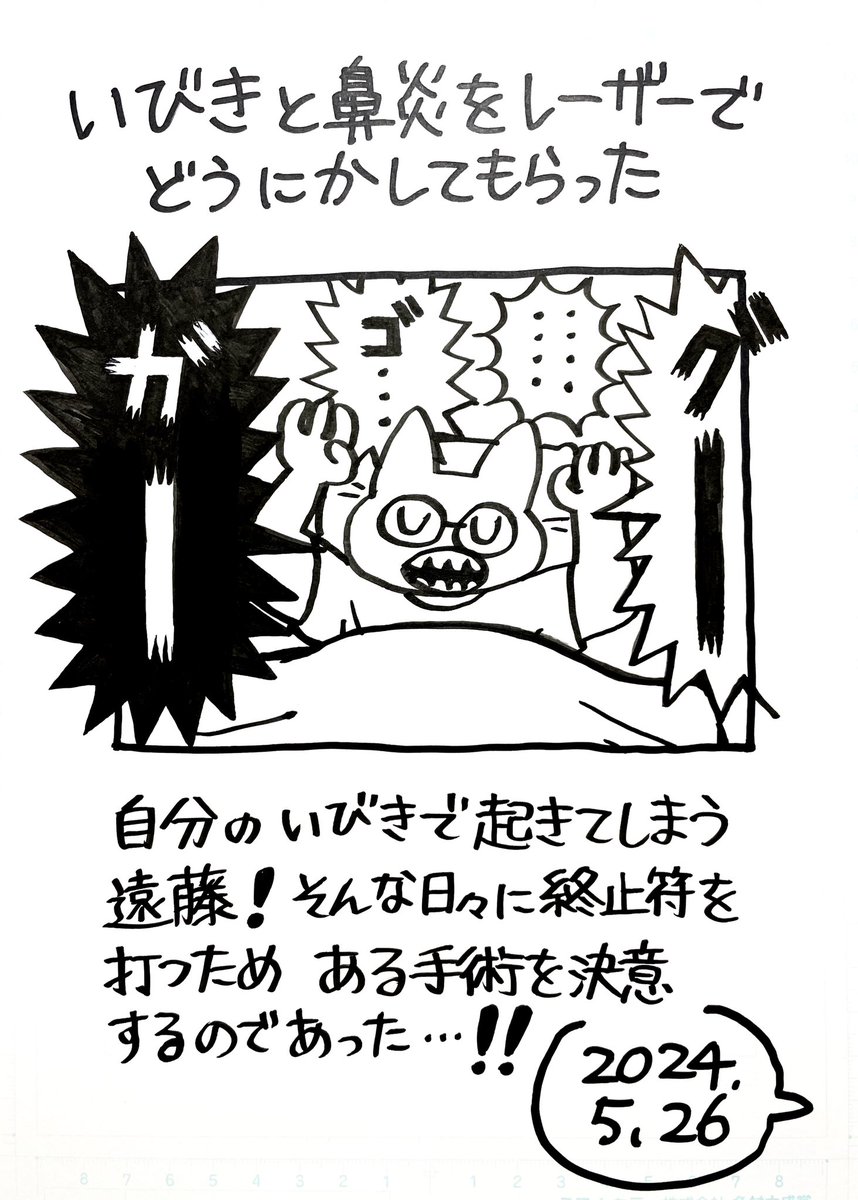 いびきと鼻炎をレーザーで
どうにかしてもらった
グー
‥‥‥‥
ゴ‥‥
ガー
自分のいびきで起きてしまう
遠藤!そんな日々に終止符を
打つため ある手術を決意
するのであった…!!
2024.
5.26
8 7 6 5 4 3 2 1 1 2 3 4 5 6 7 8